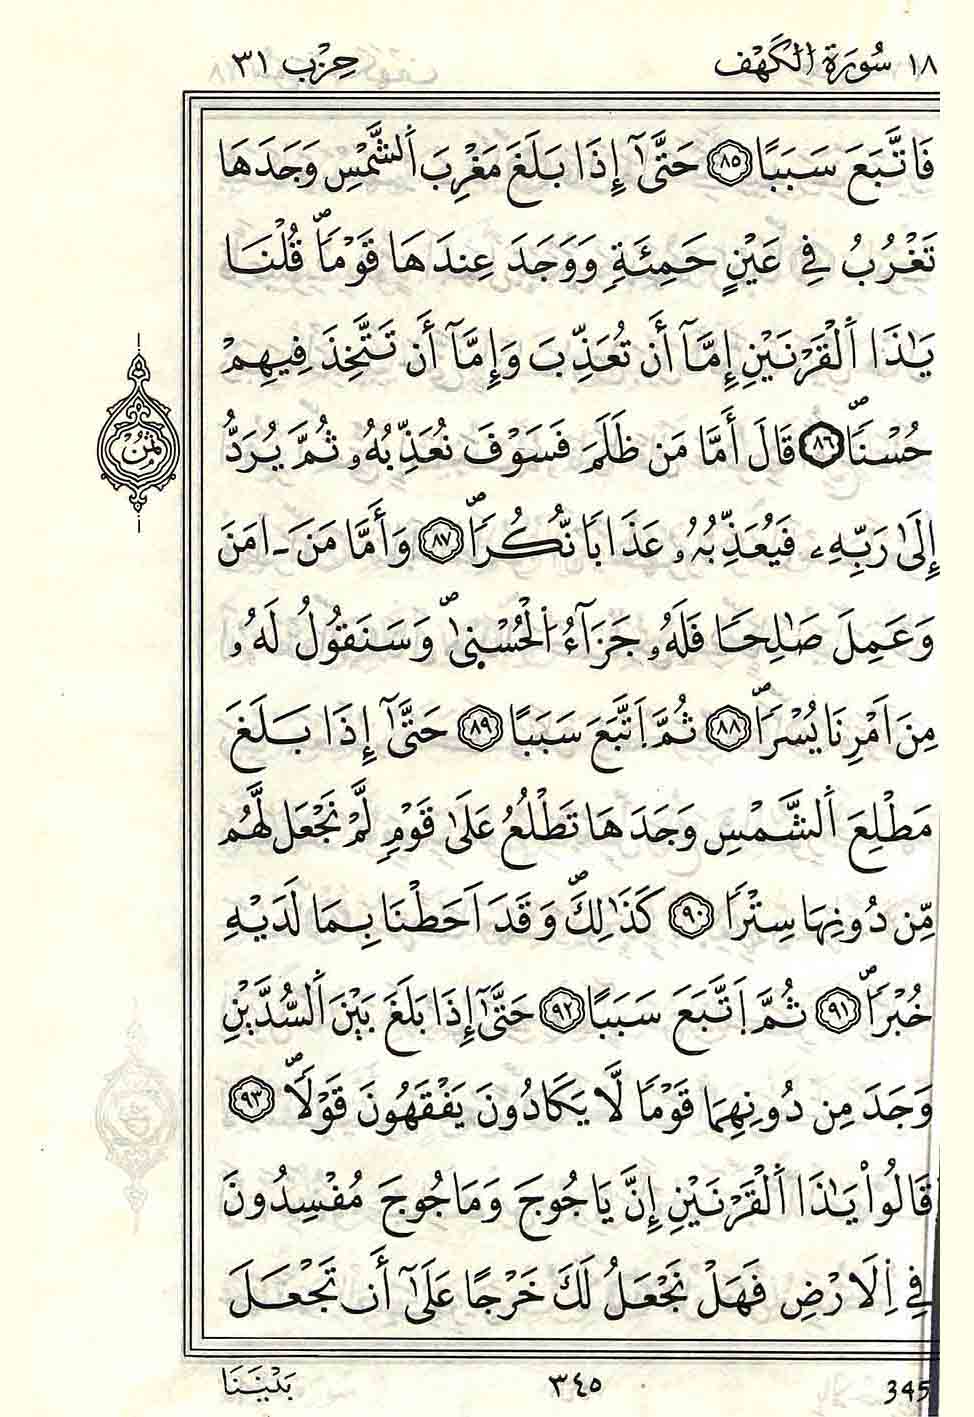 ١٨ سُورَةُ الكَهْف حِزْب ٣١
فَاتَّبَعَ سَبَبًا ٨٥ حَتَّىٰٓ إِذَا بَلَغَ مَغْرِبَ اَ۬لشَّمْسِ وَجَدَهَا
تَغْرُبُ فِي عَيْنٍ حَمِئَةٍ وَوَجَدَ عِندَهَا قَوْماًۖ قُلْنَا
يَٰذَا اَ۬لْقَرْنَيْنِ إِمَّآ أَن تُعَذِّبَ وَإِمَّآ أَن تَتَّخِذَ فِيهِمْ
حُسْناًۖ ٨٦ قَالَ أَمَّا مَن ظَلَمَ فَسَوْفَ نُعَذِّبُهُۥ ثُمَّ يُرَدُّ
ثُمُن
إِلَىٰ رَبِّهِۦ فَيُعَذِّبُهُۥ عَذَاباً نُّكُراًۖ ٨٧ وَأَمَّا مَنَ ـ امَنَ
وَعَمِلَ صَٰلِحاً فَلَهُۥ جَزَآءُ اُ۬لْحُسْنٰىۖ وَسَنَقُولُ لَهُۥ
مِنَ اَمْرِنَا يُسْراًۖ ٨٨ ثُمَّ اَ۪تَّبَعَ سَبَبًا ٨٩ حَتَّىٰٓ إِذَا بَلَغَ
مَطْلِعَ اَ۬لشَّمْسِ وَجَدَهَا تَطْلُعُ عَلَىٰ قَوْمٍ لَّمْ نَجْعَل لَّهُم
مِّن دُونِهَا سِتْراً ٩٠ كَذَٰلِكَۖ وَقَدَ اَحَطْنَا بِمَا لَدَيْهِ
خُبْراًۖ ٩١ ثُمَّ اَ۪تَّبَعَ سَبَبًا ٩٢ حَتَّىٰٓ إِذَا بَلَغَ بَيْنَ اَ۬لسُّدَّيْنِ
وَجَدَ مِن دُونِهِمَا قَوْماً لَّا يَكَادُونَ يَفْقَهُونَ قَوْلاًۖ ٩٣
قَالُواْ يَٰذَا اَ۬لْقَرْنَيْنِ إِنَّ يَاجُوجَ وَمَاجُوجَ مُفْسِدُونَ
فِي اِ۬لَارْضِ فَهَلْ نَجْعَلُ لَكَ خَرْجاً عَلَىٰٓ أَن تَجْعَلَ
بَيْنَنَا ٣٤٥ 345